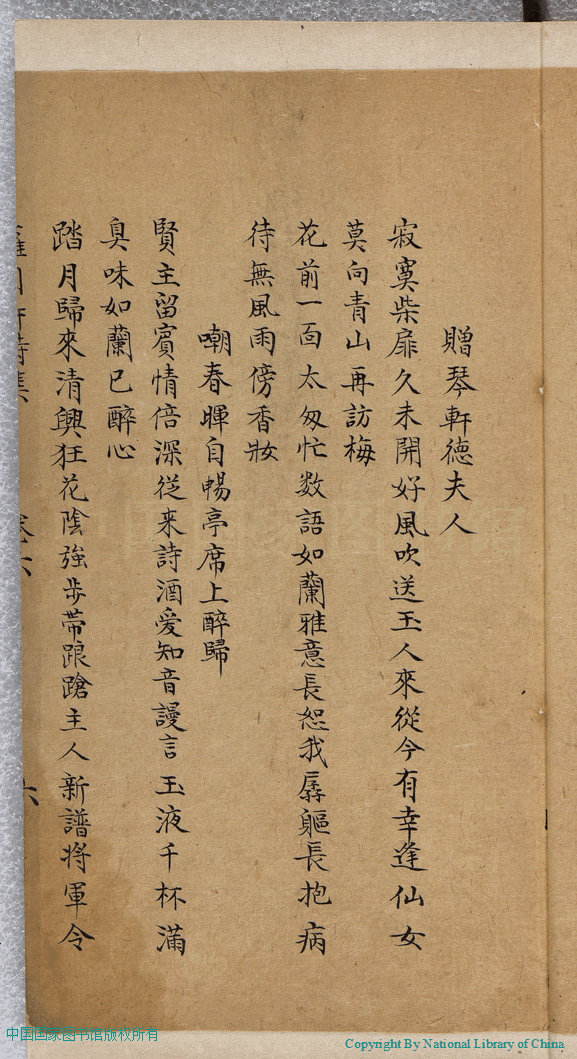 贈琴軒德夫人
寂寞柴扉久未開好風吹送玉人來從今有幸逢仙女
莫向青山再訪梅
花前一面太匆忙数語如蘭雅意長恕我孱軀長抱病
待無風雨傍香妝
嘲春暉自暢亭席上醉歸
賢主留賓情倍深從来詩酒爱知音謾言玉液千杯滿
臭味如蘭已醉心
踏月歸來清興狂花陰強步帶踉蹌主人新譜将軍令
卷六
六
中国国家图书馆版权所有
Copyright By National Library of China